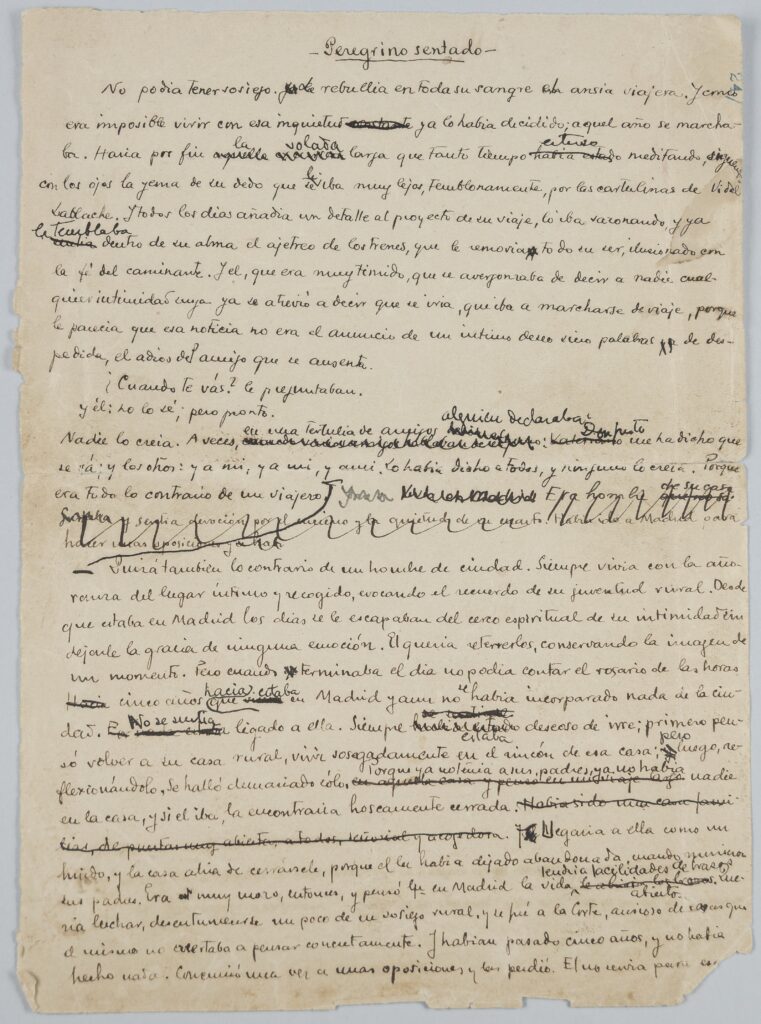 - Peregrino sentado -
No podia tener sosiego. le rebullia en toda su sangre el ansia viajera. Y como
era imposible vivir con esa inquietud constante ya lo habia decidido; aquel año se marcha-
ba. Haria por fin la volada larga que tanto tiempo estuvo meditando, siguiendo
con los ojos la yema de su dedo que le iba muy lejos, temblonamente, por las cartulinas de Vidal
Lablache. Y todos los dias añadia un detalle al proyecto de su viaje, lo iba sazonando, y ya
le temblaba dentro de su alma el ajetreo de los trenes, que le removia todo su ser, ilusionado con
la fé del caminante. Y el, que era muy timido, que se avergonzaba de decir a nadie cual-
quier intimidad suya ya se atrevió a decir que se iria, que iba a marcharse de viaje, porque
le parecia que esa noticia no era el anuncio de un intimo deseo sino palabras ya de des-
pedida, el adios del amigo que se ausenta.
¿Cuando te vás? le preguntaban.
y él: no lo sé; pero pronto.
Nadie lo creia. A veces, en una tertulia de amigos alguien declaraba: Don Justo me ha dicho que
se vá; y los otros: y a mi, y a mi, y a mi. Lo habia dicho a todos, y ninguno lo creia. Porque
era todo lo contrario de un viajero. Era hombre de su casa
y sentia devoción por el mismo y la quietud de su cuarto. Habia ido a Madrid para
hacer unas oposiciones y
- Quizá también lo contrario de un hombre de ciudad. Siempre vivia con la año-
ranza del lugar intimo y recogido, evocando el recuerdo de su juventud rural. Desde
que estaba en Madrid los dias se le escapaban del cerco espiritual de su intimidad sin
dejarle la gracia de ninguna emoción. El queria retenerlos, conservando la imagen de
un momento. Pero cuando terminaba el dia no podia contar el rosario de las horas
Hacia cinco años que estaba en Madrid y aun no se habia incorporado nada de la ciu-
dad. No se sentia ligado a ella. Siempre estaba deseoso de irse; primero pen-
só volver a su casa rural, vivir sosegadamente en el rincón de esa casa; pero luego, re-
flexionándolo, se halló demasiado sólo, Porque ya no tenia a sus padres, ya no habia nadie
en la casa, y si el iba, la encontraria hoscamente cerrada. Habia sido una casa fami-
liar, de puertas muy abiertas a todos, señorial y acogedora. Y Llegaria a ella como un
huido, y la casa abia de cerrársele, porque el la habia dejado abandonada, cuando murieron
sus padres. Era muy mozo, entonces, y pensó que en Madrid la vida tendria facilidades de brazo abierto. que-
ria luchar, desentumecerse un poco de su sosiego rural, y se fué a la Corte, ansioso de cosas que
el mismo no acertaba a pensar concretamente. Y habian pasado cinco años, y no habia
hecho nada. Concurrió una vez a unas oposiciones y las perdió. El no servia para eso